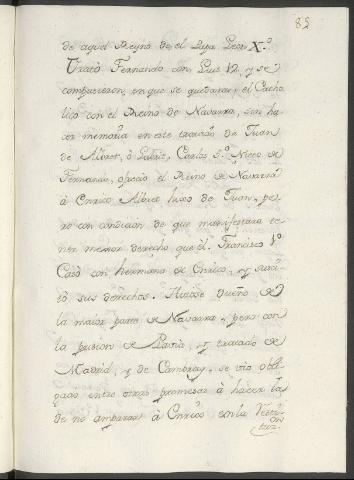 85
de aquel Reyno de el Papa Leon X.º
Trató Fernando con Luis 12. y se
compusieron, en que se quedara el Catho
lico con el Reino de Navarra, sin ha
cer memoria en este tratado de Juan
de Albret, ò Labrit, Carlos 5.º Nieto de
Fernando, ofreció el Reino de Navarra
à Enrico Albret hixo de Juan, pe
ro con condicion de que manifestara te
ner mexor derecho que él. Francisco 1º
Casó con hermana de Enrico, y susci
tò sus derechos. Hizose dueño de
la maior parte de Navarra, pero con
la prision de Pavia, y tratado de
Madrid, y de Cambray, se vio obli
gado entre otras promesas à hacer la
de no amparar à Enrico en la